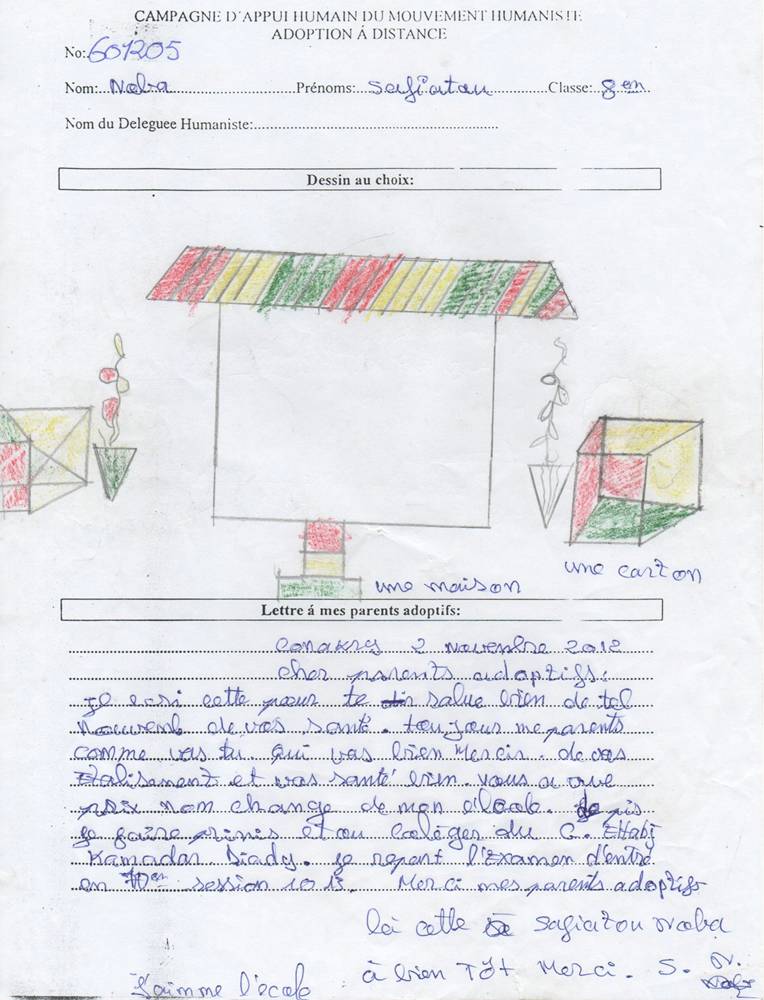 CAMPAGNE D'APPUI HUMAIN DU MOUVEMENT HUMANISTE
ADOPTION Á DISTANCE
No: 601205
Nom: Naba Prénoms: Safiatou Classe: 8em
Nom du Deleguee Humaniste:
Dessin au choix:
une carton
une maison
Lettre á mes parents adoptifs:
Conakry 2 Novembre 2012
cher parents adoptifs:
je ecri cette pour te salue bien de tel
de vos santé. toujours me parents
comme vas tu qui vas bien Mercis. de vos
et vos santé bien. vous a
nom change de mon école. pis
je faire et au du C. ElHabj
Kamadar Diady. je repart l'Examen d'entré
en 10em session 10 13. Merci mes parents adoptifs
cette Safiatou Naba
à bien Tôt Merci. S. N.
J'aimme l'école